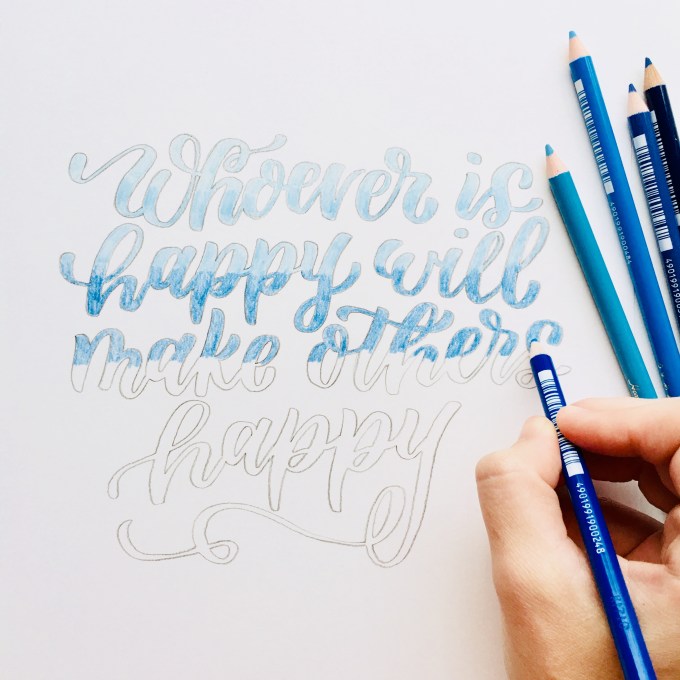 Whoever is
happy will
make others
happy
4901991900248